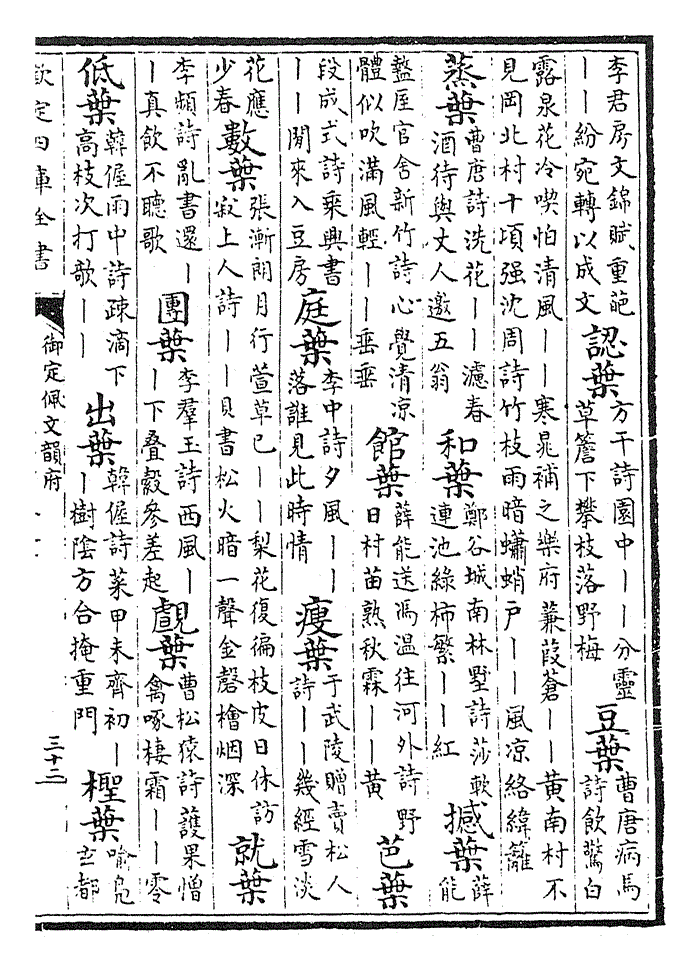 李君房文錦賦重葩
——紛宛轉以成文
認葉
方干詩園中——分靈
草簷下攀枝落野梅
豆葉
曹唐病馬
詩飲驚白
露泉花冷喫怕清風——寒晁補之樂府蒹葭蒼——黃南村不
見岡北村十頃强沈周詩竹枝雨暗蠨蛸户——風凉絡緯籬
蒸葉
曹唐詩洗花——濾春
酒待與丈人邀五翁
和葉
鄭谷城南林墅詩莎軟
連池綠柿繁——紅
撼葉
薛
能
盩厔官舍新竹詩心覺清凉
體似吹滿風輕——垂垂
館葉
薛能送馮温往河外詩野
日村苗熟秋霖——黃
芭葉
段成式詩乘興書
——閒來入豆房
庭葉
李中詩夕風——
落誰見此時情
瘦葉
于武陵贈賣松人
詩——幾經雪淡
花應
少春
數葉
張漸朗月行萱草已——梨花復徧枝皮日休訪
寂上人詩——貝書松火暗一聲金磬檜烟深
就葉
李頻詩亂書還—
—真飲不聽歌
團葉
李羣玉詩西風—
—下叠縠參差起
覰葉
曹松猿詩護果憎
禽啄棲霜——零
低葉
韓偓雨中詩疎滴下
高枝次打欹——
出葉
韓偓詩菜甲未齊初—
—樹陰方合掩重門
檉葉
喻鳬
玄都
欽定四庫全書
御定佩文韻府
三十二